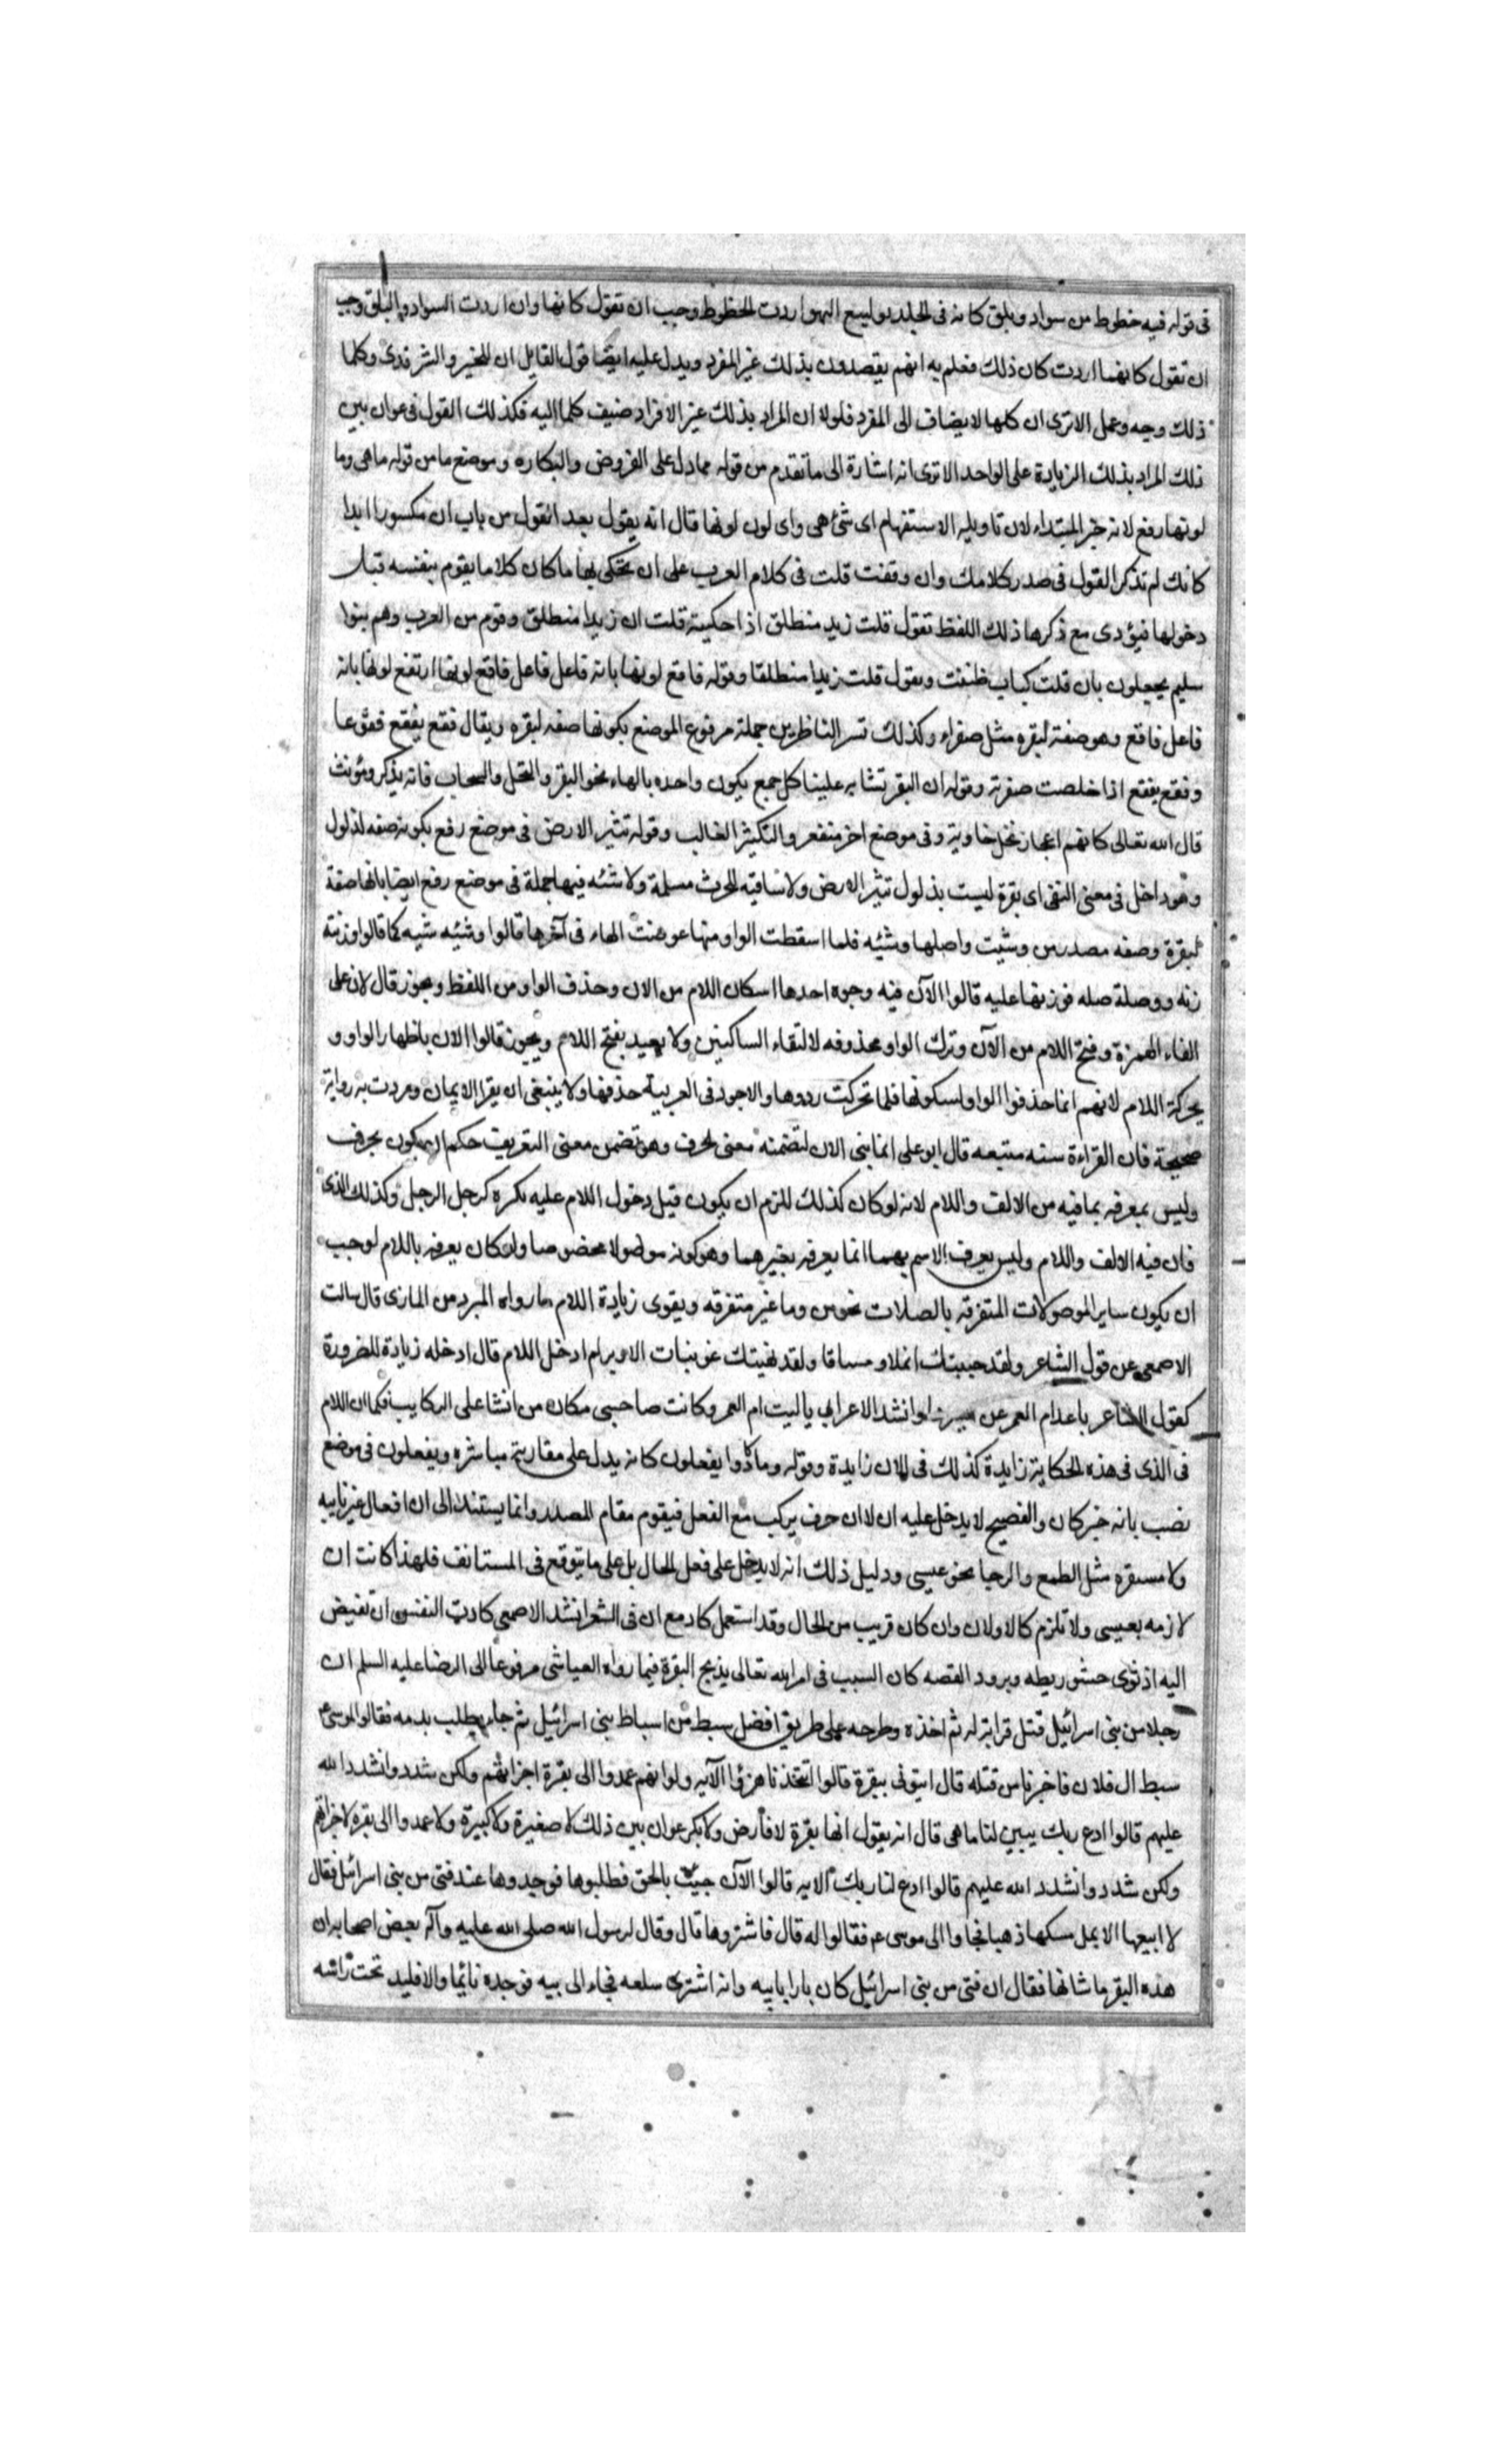 فى قوله فيه خطوط من سواد وبلق كانه فى الجلد توليع البهق ان اردت الخطوط وجب ان تقول كانها وان اردت السواد والبلق وجب
ان تقول كانهما اردت كان ذلك فعلم به انهم يقصدون بذلك غير المفرد ويدل عليه ايضا قول القايل ان للخير وللشر مدى وكلا
ذلك وجه وعمل الاترى ان كلها لا يضاف الى المفرد فلولا ان المراد بذلك غير الافراد ضيف كلما اليه فكذلك القول فى عوان بين
ذلك المراد بذلك الزيادة على الواحد الاترى انه اشارة الى ما تقدم من قوله مما دل على الفروض والبكاره وموضع ما من قوله ما هى وما
لونها رفع لانه خبر المبتداء لان تاويله الاستفهام اى شئ هى واى لون لونها قال انه يقول بعد القول من باب ان مكسورا ابدا
كانك لم تذكر القول فى صدر كلامك وان وقفت قلت فى كلام العرب على ان يحكى بها ما كان كلاما يقوم بنفسه قبل
دخولها فيؤدى مع ذكرها ذلك اللفظ تقول قلت زيد منطلق اذا حكيته قلت ان زيدا منطلق وقوم من العرب وهم بنوا
سليم يجعلون باب قلت كباب ظننت ويقول قلت زيدا منطلقا وقوله فاقع لونها بانه فاعل فاعل فاقع لونها ارتفع لونها بانه
فاعل فاقع وهو صفة لبقره مثل صفراء وكذلك تسر الناظرين جملة مرفوع الموضع بكونها صفه لبقره ويقال فقع يفقع فقوعا
وفقع يفقع اذا خلصت صفرته وقوله ان البقر تشابه علينا كل جمع يكون واحده بالهاء نحو البقر والنخل والسحاب فانه يذكر ويؤنث
قال الله تعالى كانهم اعجاز نخل خاوية وفى موضع اخر منقعر والتكثير الغالب وقوله تثير الارض فى موضع رفع بكونه صفه لذلول
وهو داخل فى معنى النفى اى بقرة ليست بذلول تثير الارض ولا ساقيه للحرث مسلمة ولا شئه فيها جملة فى موضع رفع ايضا بانها صفة
لبقرة وصفه مصدر من وشيت واصلها وشئه فلما اسقطت الواو منها عوضت الهاء فى آخرها قالوا وشئه شيه كما قالوا وزنة
زنه ووصلة صله فوزنها عليه قالوا الآن فيه وجوه احدها اسكان اللام من الان وحذف الواو من اللفظ ويجوز قال لان على
القاء الهمزة وفتح اللام من الآن وترك الواو محذوفه لالتقاء الساكنين ولا بعيد بفتح اللام ويجوز قالوا الان باظهار الواو و
بحركة اللام لانهم انما حذفوا الواو لسكونها فلما تحركت ردوها والاجود فى العربية حذفها ولا ينبغى ان يقرا الا بما وردت به رواية
صحيحة فان القراءة سنه متبعه قال ابو على انما بنى الان لتضمنه معنى الحرف وهو تضمن معنى التعريف حكم ان يكون بحرف
وليس بمعرفه بما فيه من الالف واللام لانه لو كان كذلك للزم ان يكون قبل دخول اللام عليه نكره كرجل الرجل وكذلك الذى
فان فيه الالف واللام وليس يعرف الاسم بهما انما يعرف بغيرهما وهو كونه موصولا مخصوصا ولو كان يعرفه باللام لوجب
ان يكون ساير الموصولات المتفرقه بالصلات نحو من وما غير متفرقه ويقوى زيادة اللام ما رواه المبرد من المازى قال سالت
الاصمعى عن قول الشاعر ولقد جيبتك اغلاو مساقا ولقد نهيتك عن بنات الاوبر لم ادخل اللام قال ادخله زيادة للضرورة
كقول الشاعر باعدام العمر عن اسيرها وانشد الاعرابى ياليت ام العمرو كانت صاحبى مكان من انشا على الركايب فكما ان اللام
فى الذى فى هذه الحكاية زايدة كذلك فى الان زايدة وقوله وما كادوا يفعلون كانه يدل على مقاربة مباشره ويفعلون فى موضع
نصب بانه خبر كان والفصيح لا يدخل عليه ان لا ان حرف يركب مع الفعل فيقوم مقام المصدر وانما يستند الى ان افعال غير ثابيه
ولا مستقره مثل الطمع والرجا نحو عيسى ودليل ذلك انه لا يدخل على فعل الحال بل على ما يتوقع فى المستانف فلهذا كانت ان
لازمه بعيسى ولا تلزم كالاولان وان كان قريب من الحال وقد استعمل كاد مع ان فى الشعر انشد الاصمعى كادت النفس ان تفيض
اليه اذ ثوى حشو ريطه وبرود القصه كان السبب فى امر الله تعالى بذبح البقرة فيما رواه العياشى مرفوعا الى الرضا عليه السلم ان
رجلا من بنى اسرائيل قتل قرابة له ثم اخذه وطرحه على طريق افضل سبط من اسباط بنى اسرائيل ثم جاء يطلب بدمه فقالوا لموسى
سبط ال فلان فاخبرنا من قتله قال ايتونى ببقرة قالوا اتتخذنا هزؤا الآيه ولو انهم عمدوا الى بقرة اجزاتهم ولكن شددوا فشدد الله
عليهم قالوا ادع ربك يبين لنا ما هى قال انه يقول انها بقرة لا فارض ولا بكر عوان بين ذلك لا صغيرة ولا كبيرة ولا عمدوا الى بقره لاجزاتهم
ولكن شددوا فشدد الله عليهم قالوا ادع لنا ربك الايه قالوا الآن جيئت بالحق فطلبوها فوجدوها عند فتى من بنى اسرائيل فقال
لا ابيعها الا بملء مسكها ذهبا فجاوا الى موسى ع م فقالوا له قال فاشتروها قال وقال لرسول الله صلى الله عليه وآله بعض اصحابه ان
هذه البقر ما شانها فقال ان فتى من بنى اسرائيل كان بارا بابيه وانه اشترى سلعه فجاء الى بيه فوجده نائما والاقليد تحت راسه